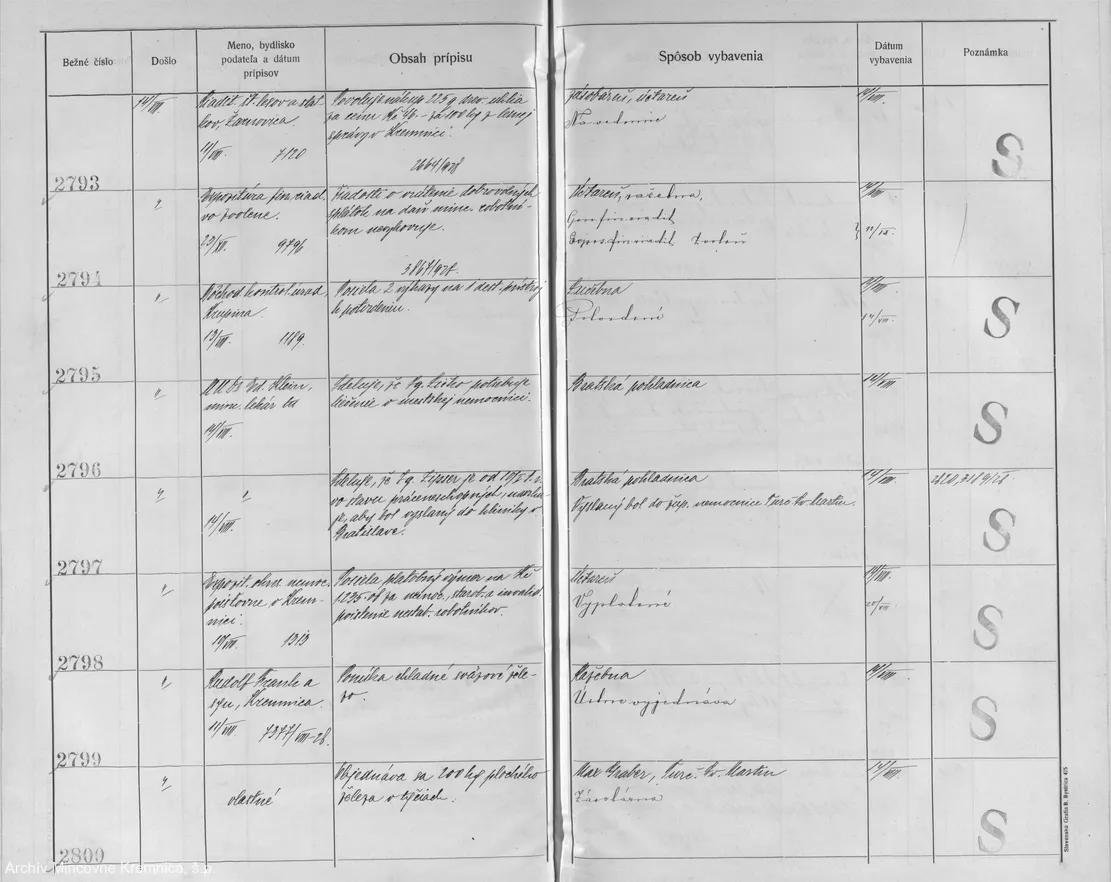 Bežné číslo
Došlo
Meno, bydlisko
podateľa a dátum
prípisov
Obsah prípisu
Spôsob vybavenia
Dátum
vybavenia
Poznámka
14/VIII.
Riadit. št. lesov a stat-
kov, Žarnovica.
11/VIII. 7120
Povoľuje nákup 225 q drev. uhlia
za cenu Kč 46.- za 100 kg z lesnej
správy v Kremnici.
2664/928
účtáreň
Na vedomie
14/VIII.
S
2793
"
Expozitúra fin. riad.
vo Zvolene.
9796
Žiadosti o vrátenie dobrovoľných
splátok na daň minc. robotní-
kom nevyhovuje.
3867/928.
Účtáreň,
14/VIII
2794
"
Krupina.
13/VIII. 1189.
Zasiela 2 výkazy na 1 dest. prístroj
k potvrdeniu.
Potvrdené
14/VIII.
17/VIII.
S
2795
"
MUDr Ed. Klein,
minc. lekár tu
14/VIII.
Sdeluje, že Ig. Liško potrebuje
liečenie v mestskej nemocnici.
Bratská pokladnica
14/VIII
S
2796
"
"
14/VIII.
Sdeluje, že Ig. Lipser je od
vo stavu práceneschopných, navrhu-
je, aby bol vyslaný do kliniky v
Bratislave.
Bratská pokladnica
Vyslaný bol do žup. nemocnice Turč. Sv. Martin.
14/VIII.
S
2797
"
Expozit. okr. nemoc.
poisťovne v Krem-
nici.
14/VIII. 1313
Zasiela platobný výmer na Kč
za nemoc., starob. a invalid.
poistenie neštát. robotníkov.
Účtáreň
Vyplatené
14/VIII.
S
2798
"
Rudolf Frankl a
syn, Kremnica.
11/VIII. 7377/VIII-28.
Ponúka chladné svárové žele-
zo.
Razebna
Ústne vyjednáva
14/VIII
S
2799
"
vlastné
Objednáva sa 200 kg plochého
železa v tyčiach.
Max Graber, Turč. Sv. Martin
14/VIII.
S
2800
Slovenská Grafia B. Bystrica 475
Archív Mincovne Kremnica, š.p.